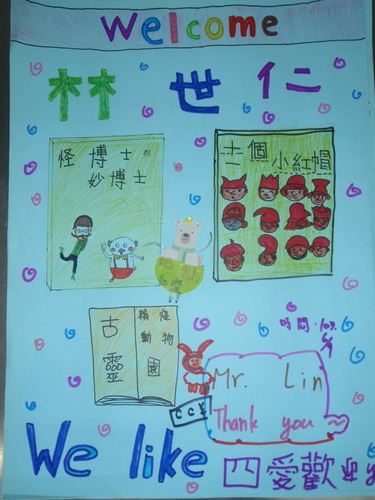 Welcome
林世仁
怪博士與
妙博士
十二個
小紅帽
古靈
精怪
動物
園
時間:103.
Mr. Lin
Thank you ~
We like 四愛歡迎